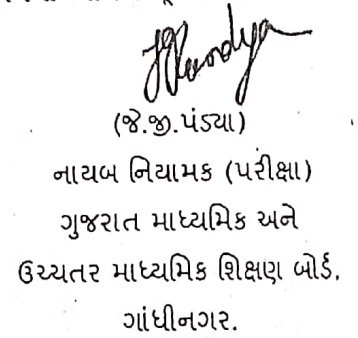 JGPandya
(જે.જી.પંડ્યા)
નાયબ નિયામક (પરીક્ષા)
ગુજરાત માધ્યમિક અને
ઉચ્ચતર માધ્યમિક શિક્ષણ બોર્ડ,
ગાંધીનગર.